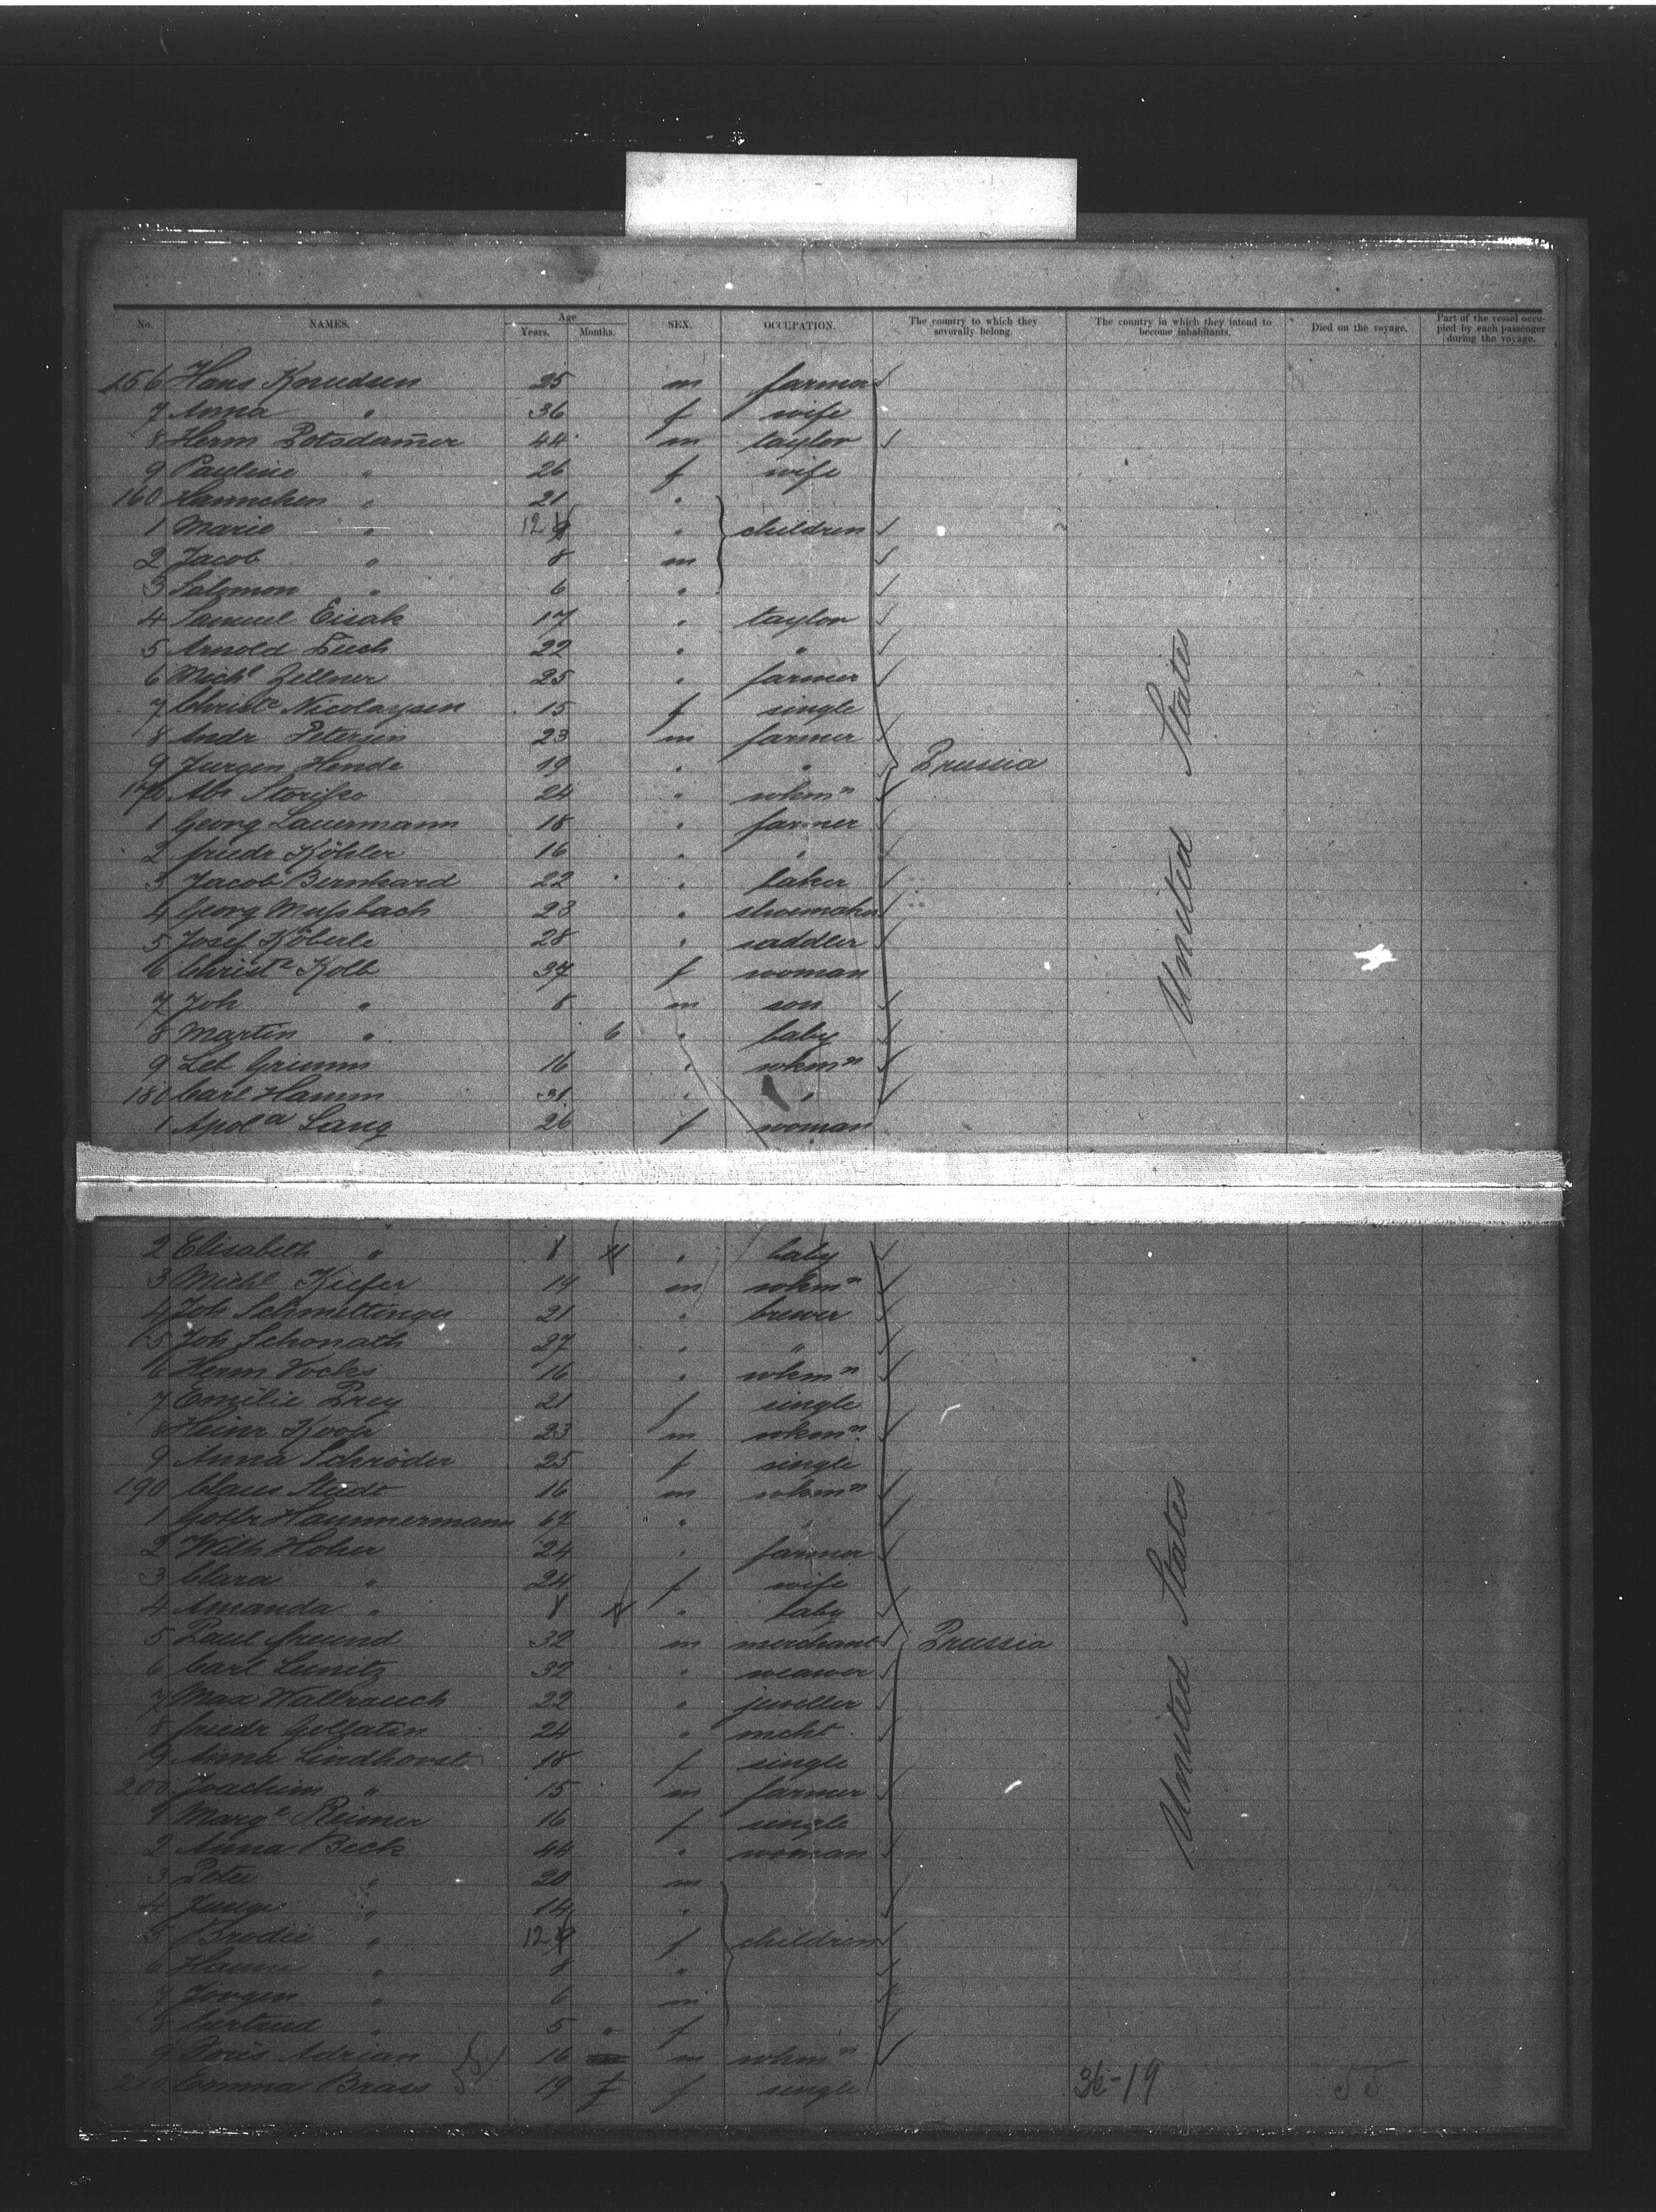 No. NAMES. Age Years. Months. SEX. OCCUPATION. The country to which they severally belong. The country in which they intend to become inhabitants. Died on the voyage. Part of the vessel occupied by each passenger during the voyage.
156 Hans Knudsen 25 m farmer
7 Anna " 36 f wife
8 Herm Potsdam̄er 44 m taylor
9 Pauline " 26 f wife
160 Hannchen " 21 "
1 Marie " 12 9 " children
2 Jacob " 8 m
3 Salomon " 6 "
4 Samuel Eisak 17 " taylor
5 Arnold 22 " "
6 Michl Zellner 25 " farmer
7 Christe Nicolaysen 15 f single
8 Andr Petersen 23 m farmer
9 Jurgen Hende 19 " " Prussia
170 Abr 24 " wkmn
1 Georg Lauermann 18 " farmer
2 Friedr Köhler 16 " "
3 Jacob Bernhard 22 " baker
4 Georg Mussbach 23 " shoemaker
5 Josef Köberle 28 " saddler
6 Christe Kolb 37 f woman
7 Joh " 8 m son
8 Martin " 6 " baby
9 Leb Grumm 16 " wkmn
180 Carl Hamm 31 " "
1 Apola Lang 26 f woman
United States
2 Elisabeth " " baby
3 Michl Kiefer 14 m wkmn
4 Joh Schmittinger 21 " brewer
5 Joh Schonath 27 " "
6 Herm Vocks 16 " wkmn
7 Emilie Prey 21 f single
8 Heinr Koop 23 m wkmn
9 Anna Schröder 25 f single
190 Claus Stüdt 16 m wkmn
1 Gottlr Hammermann 67 " "
2 Wilh Hoher 24 " farmer
3 Clara " 24 f wife
4 Amanda " " baby
5 Paul Freund 32 m merchant Prussia
6 Carl Leinitz 32 " weawer
7 Max Wallrauch 22 " juweller
8 Friedr 24 " mcht
9 Anna Lindhorst 18 f single
200 Joachim " 15 m farmer
1 Margt Reimer 16 f single
2 Anna Beck 44 " woman
3 Peter " 20 m
4 " 14 "
5 Brodie " 12 9 f children
6 Hanne " 8 "
7 Jörgen " 6 m
8 Gertrud " 5 f
9 Adrian 16 m wkmn
210 Emma Brass 19 f single
United States
36-19
55